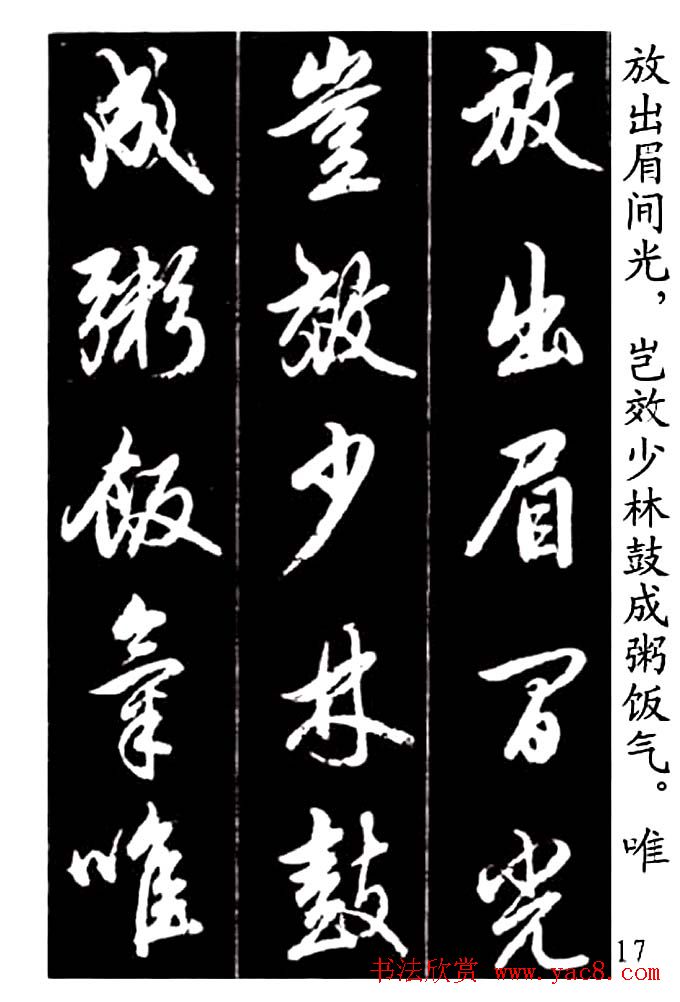 放出眉间光，岂效少林鼓成粥饭气。唯
放出眉间光
豈效少林鼓
成粥飯氣唯
17
书法欣赏 www.yac8.com